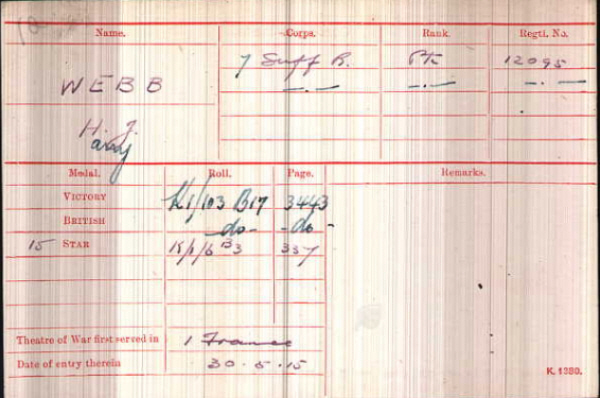 Name. Corps. Rank. Regtl. No.
WEBB 7 Suff R. Pte 12095
—.— —.— —.—
H. J.
arry
Medal. Roll. Page. Remarks.
VICTORY K1/103 B17 3443
BRITISH —do— -do-
15 STAR K/1/6 B3 337
Theatre of War first served in 1 France
Date of entry therein 30.5.15
K. 1380.